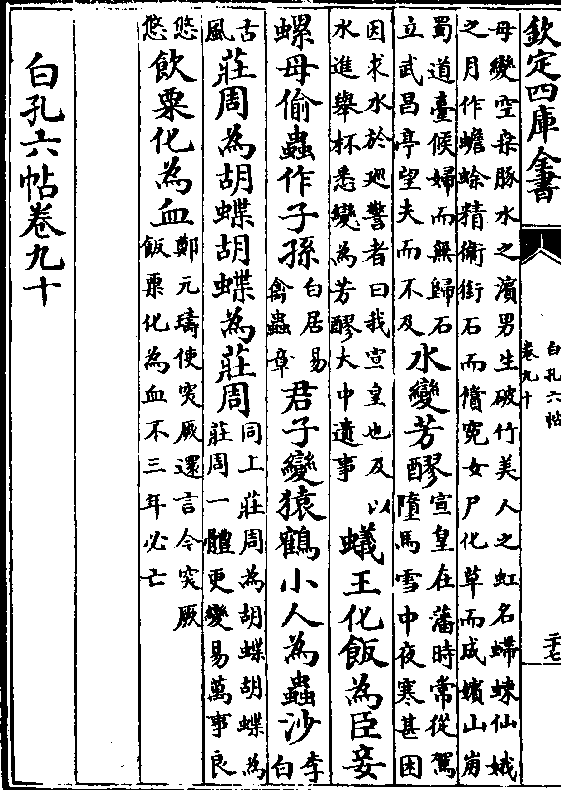 欽定四庫全書
白孔六帖
卷九十
二十七
母變空桑豚水之濱男生破竹美人之虹名蝃蝀仙娥
之月作蟾蜍精衛銜石而償寃女尸化草而成嬪山崩
蜀道臺候婦而無歸石
立武昌亭望夫而不及
水變芳醪
宣皇在藩時常從駕
墮馬雪中夜寒甚困
因求水於廵警者曰我宣皇也及以
水進舉杯悉變為芳醪大中遺事
蟻王化飯為臣妾
螺母偷蟲作子孫
白居易
禽蟲章
君子變猿鶴小人為蟲沙
李
白
古
風
莊周為胡蝶胡蝶為莊周
同上莊周為胡蝶胡蝶為
莊周一體更變易萬事良
悠
悠
飲粟化為血
鄭元璹使突厥還言今突厥
飯粟化為血不三年必亡
白孔六帖卷九十